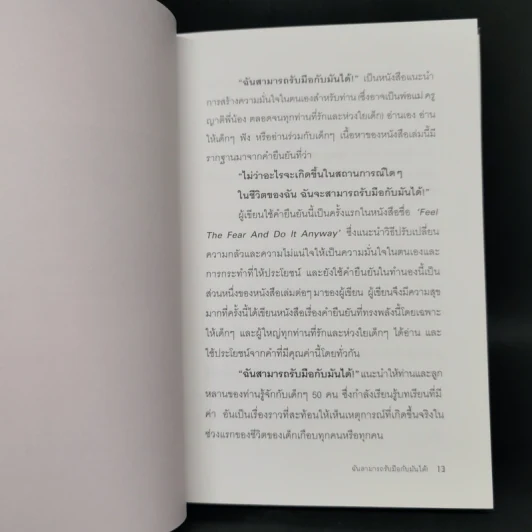 "ฉันสามารถรับมือกับมันได้!" เป็นหนังสือแนะนำ
การสร้างความมั่นใจในตนเองสำหรับท่าน (ซึ่งอาจเป็นพ่อแม่ ครู
ญาติพี่น้อง ตลอดจนทุกท่านที่รักและห่วงใยเด็ก) อ่านเอง อ่าน
ให้เด็กๆ ฟัง หรืออ่านร่วมกับเด็กๆ เนื้อหาของหนังสือเล่มนี้มี
รากฐานมาจากคำยืนยันที่ว่า
"ไม่ว่าอะไรจะเกิดขึ้นในสถานการณ์ใดๆ
ในชีวิตของฉัน ฉันจะสามารถรับมือกับมันได้!"
ผู้เขียนใช้คำยืนยันนี้เป็นครั้งแรกในหนังสือชื่อ 'Feel
The Fear And Do It Anyway' ซึ่งแนะนำวิธีปรับเปลี่ยน
ความกลัวและความไม่แน่ใจให้เป็นความมั่นใจในตนเองและ
การกระทำที่ให้ประโยชน์ และยังใช้คำยืนยันในทำนองนี้เป็น
ส่วนหนึ่งของหนังสือเล่มต่อๆ มาของผู้เขียน ผู้เขียนจึงมีความสุข
มากที่ครั้งนี้ได้เขียนหนังสือเรื่องคำยืนยันที่ทรงพลังนี้โดยเฉพาะ
ให้เด็กๆ และผู้ใหญ่ทุกท่านที่รักและห่วงใยเด็กๆ ได้อ่าน และ
ใช้ประโยชน์จากคำที่มีคุณค่านี้โดยทั่วกัน
"ฉันสามารถรับมือกับมันได้!" แนะนำให้ท่านและลูก
หลานของท่านรู้จักกับเด็กๆ 50 คน ซึ่งกำลังเรียนรู้บทเรียนที่มี
ค่า อันเป็นเรื่องราวที่สะท้อนให้เห็นเหตุการณ์ที่เกิดขึ้นจริงใน
ช่วงแรกของชีวิตของเด็กเกือบทุกคนหรือทุกคน
ฉันสามารถรับมือกับมันได้! 13